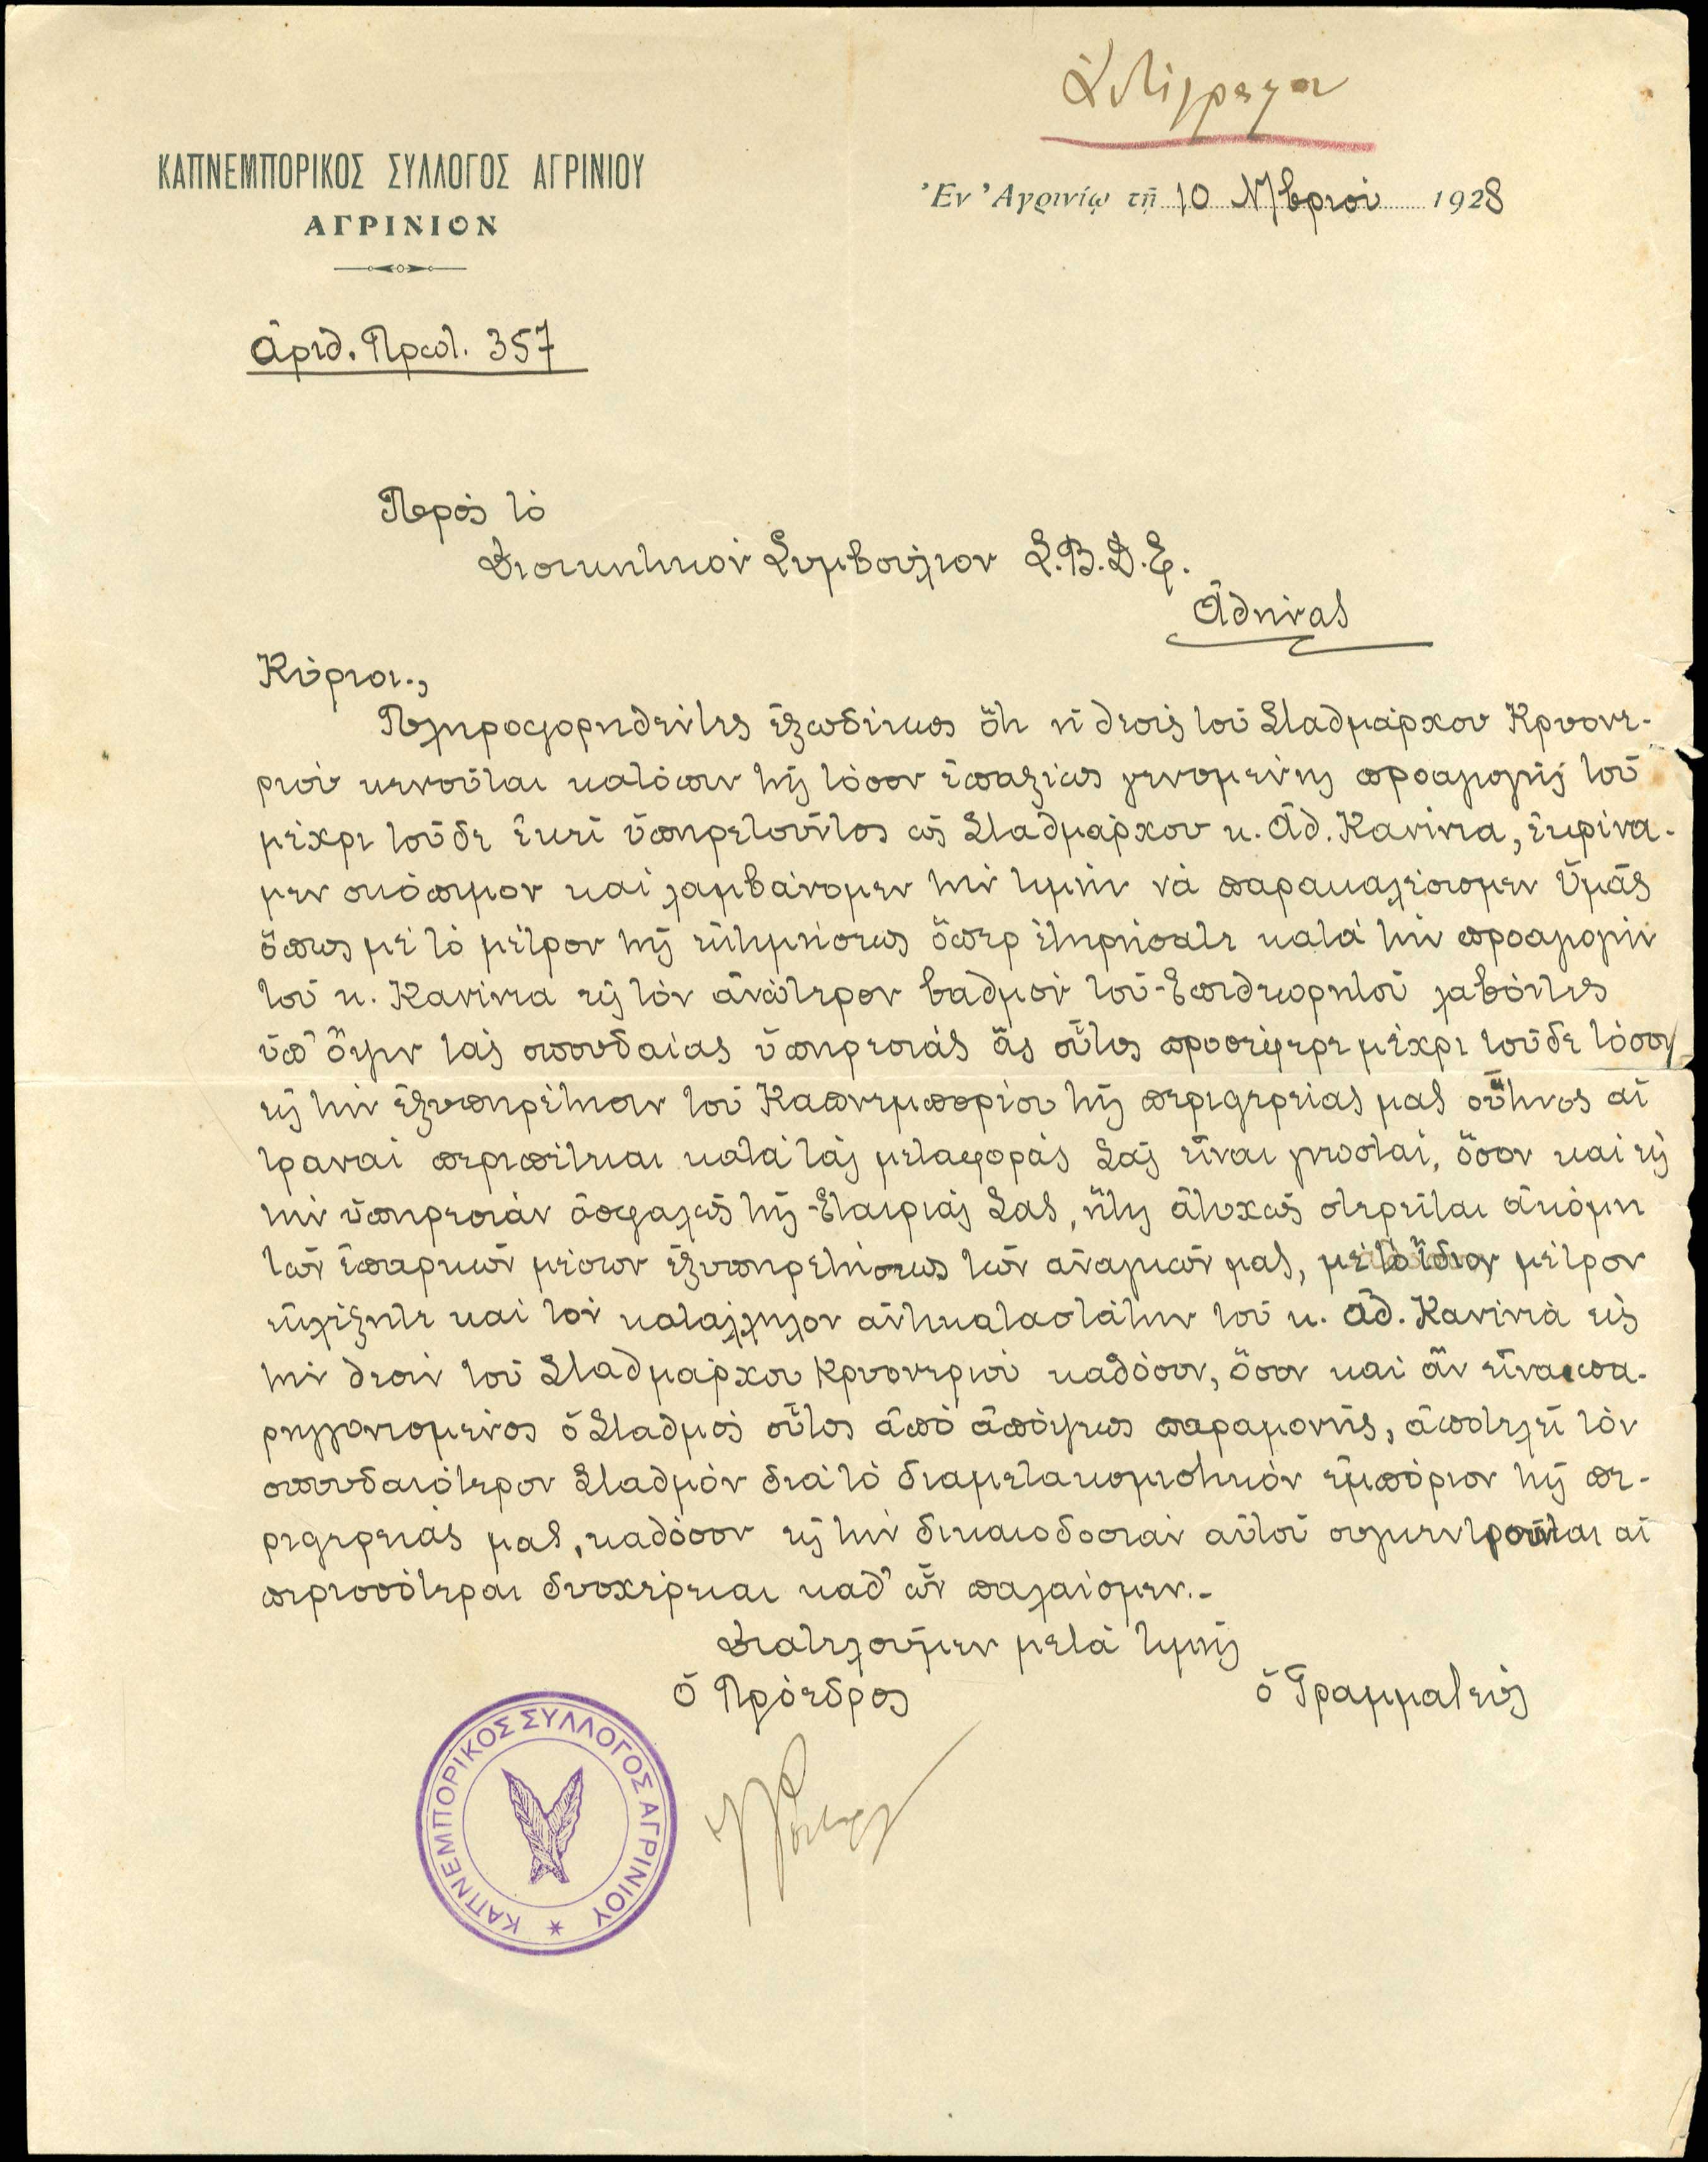 Ἀντίγραφον
ΚΑΠΝΕΜΠΟΡΙΚΟΣ ΣΥΛΛΟΓΟΣ ΑΓΡΙΝΙΟΥ
ΑΓΡΙΝΙΟΝ
Ἐν Ἀγρινίῳ τῇ 10 Νμβρίου 1928
Ἀριθ. Πρωτ. 357
Πρὸς τὸ
Διοικητικὸν Συμβούλιον Σ.Β.Δ.Ε.
Ἀθήνας
Κύριοι.,
Πληροφορηθέντες ἐξωδίκως ὅτι ἡ θέσις τοῦ Σταθμάρχου Κρυονε-
ρίου κενοῦται κατόπιν τῆς τόσον ἐπαξίως γενομένης προαγωγῆς τοῦ
μέχρι τοῦδε ἐκεῖ ὑπηρετοῦντος ὡς Σταθμάρχου κ. Ἀθ. Κανίνια, ἐκρίνα-
μεν σκόπιμον καὶ λαμβάνομεν τὴν τιμὴν νὰ παρακαλέσωμεν Ὑμᾶς
ὅπως μὲ τὸ μέτρον τῆς ἐκτιμήσεως ὅπερ ἐτηρήσατε κατὰ τὴν προαγωγὴν
τοῦ κ. Κανίνια εἰς τὸν ἀνώτερον βαθμὸν τοῦ Ἐπιθεωρητοῦ λαβόντες
ὑπ' ὄψιν τὰς σπουδαίας ὑπηρεσίας ἃς οὗτος προσέφερε μέχρι τοῦδε τόσον
εἰς τὴν ἐξυπηρέτησιν τοῦ Καπνεμπορίου τῆς περιφερείας μας οὕτινος αἱ
τραναὶ περιπέτειαι κατὰ τὰς μεταφορὰς Σᾶς εἶναι γνωσταί, ὅσον καὶ εἰς
τὴν ὑπηρεσίαν ἀσφαλῶς τῆς Ἑταιρίας Σας, ἥτις ἀτυχῶς στερεῖται ἀκόμη
τῶν ἐπαρκῶν μέσων ἐξυπηρετήσεως τῶν ἀναγκῶν μας, μὲ τὸ ἴδιον μέτρον
ἐκλέξητε καὶ τὸν κατάλληλον ἀντικαταστάτην τοῦ κ. Ἀθ. Κανίνια εἰς
τὴν θέσιν τοῦ Σταθμάρχου Κρυονερίου καθόσον, ὅσον καὶ ἂν εἶναι πα-
ρηγκωνισμένος ὁ Σταθμὸς οὗτος ἀπὸ ἀπόψεως παραμονῆς, ἀποτελεῖ τὸν
σπουδαιότερον Σταθμὸν διὰ τὸ διαμετακομιστικὸν ἐμπόριον τῆς πε-
ριφερείας μας, καθόσον εἰς τὴν δικαιοδοσίαν αὐτοῦ συγκεντροῦνται αἱ
περισσότεραι δυσχέρειαι καθ' ὧν παλαίομεν.-
Διατελοῦμεν μετὰ τιμῆς
ὁ Πρόεδρος
ὁ Γραμματεὺς
ΚΑΠΝΕΜΠΟΡΙΚΟΣ ΣΥΛΛΟΓΟΣ ΑΓΡΙΝΙΟΥ